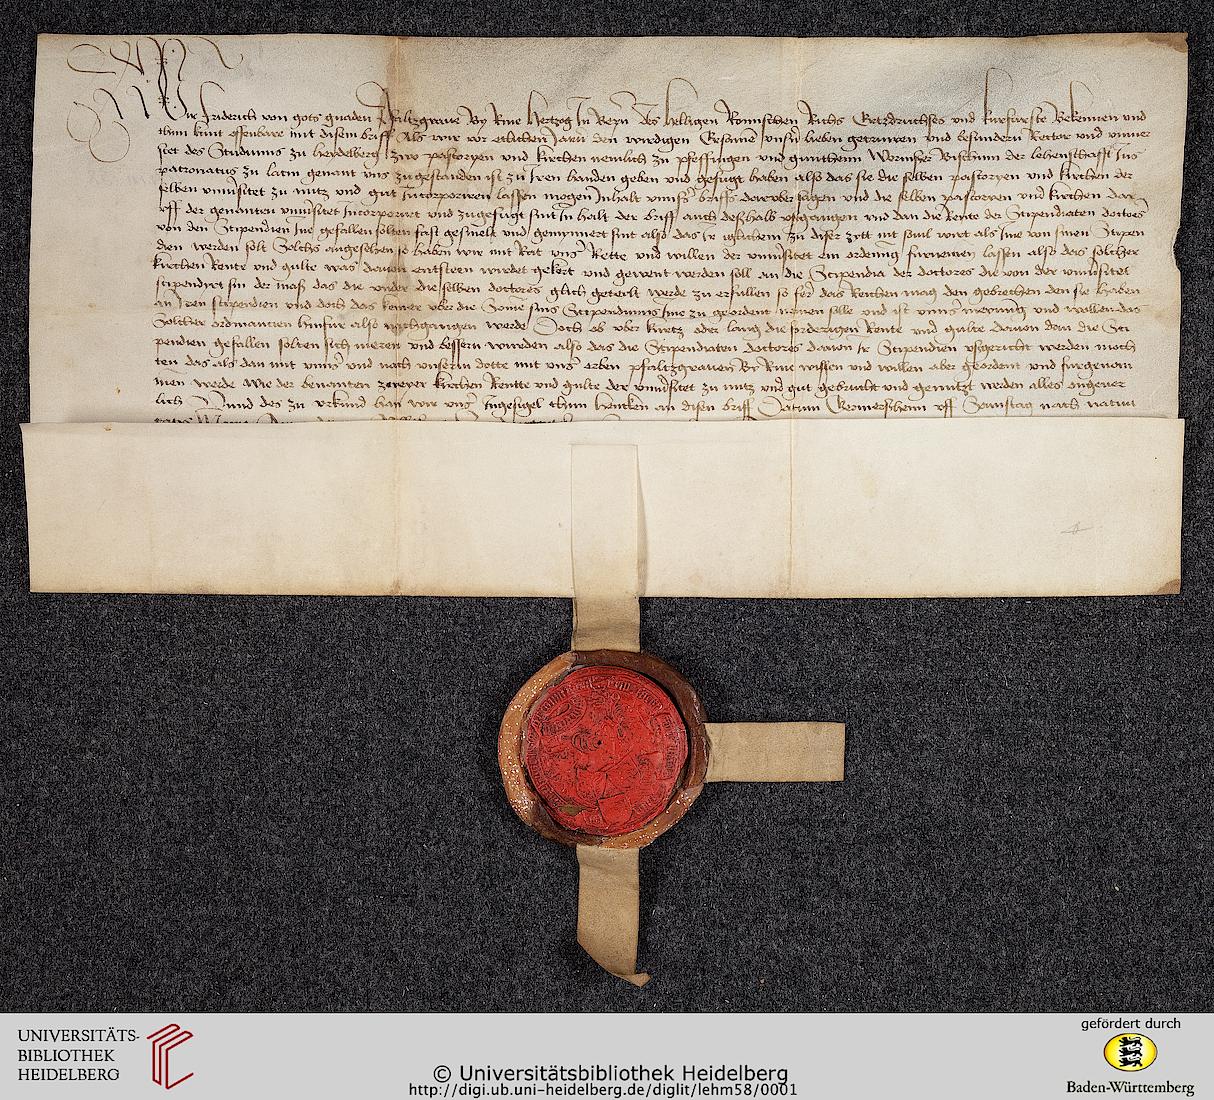 Wir Friderich von gots gnaden Pfaltzgraue By Rine Hertzog In Beyern Des heiligen Romischen Richs Ertzdruchses vnd kurfurste Bekennen vnd
thun kunt offenbare mit disem briff Als wir vor etlichen Jaren den wirdigen Ersamen vnsern lieben getruwen vnd besundern Rector vnd vniuer
sitet des Studiums zu heydelberg zwo pastoryen vnd kirchen nemlich zu pfeffingen vnd Bischtum der lehenschafft Ius
patronatus zu latin genant vns zugestanden ist zu Iren handen geben vnd gefugt haben also das sie die selben pastoryen vnd kirchen der
selben vniuersitet zu nutz vnd gut Incorporiren lassen mogen Inhalt vnnsers briffs daruber sagen vnd die selben pastoryen vnd kirchen dar
vff der genanten vniuersitet Incorporirt vnd zugefugt sint In halt der briff auch deßhalb vßgangen vnd dan die Rente der Stipendiaten doctores
von den Stipendien Ine gefallen solten fast gesmelt vnd gemynnert sint also das Ir iglichem zu diser zytt nit souil wirt als Ime von sinen Stypen
dien werden solt Solchs angesehen so haben wir mit Rat vnser Rette vnd willen der vniuersitet ein ordenung furnemen lassen also das solicher
kirchen Rente vnd gulte was dauon entsteen wirdet gekert vnd gewent werden soll an die Stipendia der doctores die von der vniuersitet
stipendirt sin der maß das die vnder die selben doctores glich geteilt werde zu erfullen so fer das Reichen mag den gebrechen den sie haben
an Iren stipendien vnd doch das keiner uber die Some sins Stipendiums Ime zu geordent nemen solle vnd ist vnnser meynung vnd wollen das
Solicher ordenancien hinfur also nachgangen werde Doch ob uber kurtz oder lang die forderigen Rente vnd gulte dauon dan die Sti
pendien gefallen solten sich meren vnd bessern wurden also das die Stipendiaten doctores dauon Ir Stipendien vßgericht werden moch
ten das als dan mit vnserm vnd nach vnserm dotte mit vnser erben pfaltzgrauen By Rine wissen vnd willen aber geordent vnd furgenom
men werde wie der benanten zweyer kirchen Rentte vnd gulte der vniuersitet zu nutz vnd gut gebrucht vnd genutzt werden alles ongeuer
lich Vnnd des zu vrkund han wir vnser Ingesigel thun hencken an disen briff Datum Germerßheim vff Sonnstag nach natiui
UNIVERSITÄTS-
BIBLIOTHEK
HEIDELBERG
© Universitätsbibliothek Heidelberg
http://digi.ub.uni-heidelberg.de/diglit/lehm58/0001
gefördert durch
Baden-Württemberg